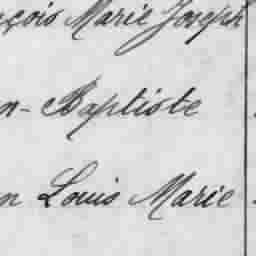 nçois Marie Joseph
n-Baptiste
n Louis Marie